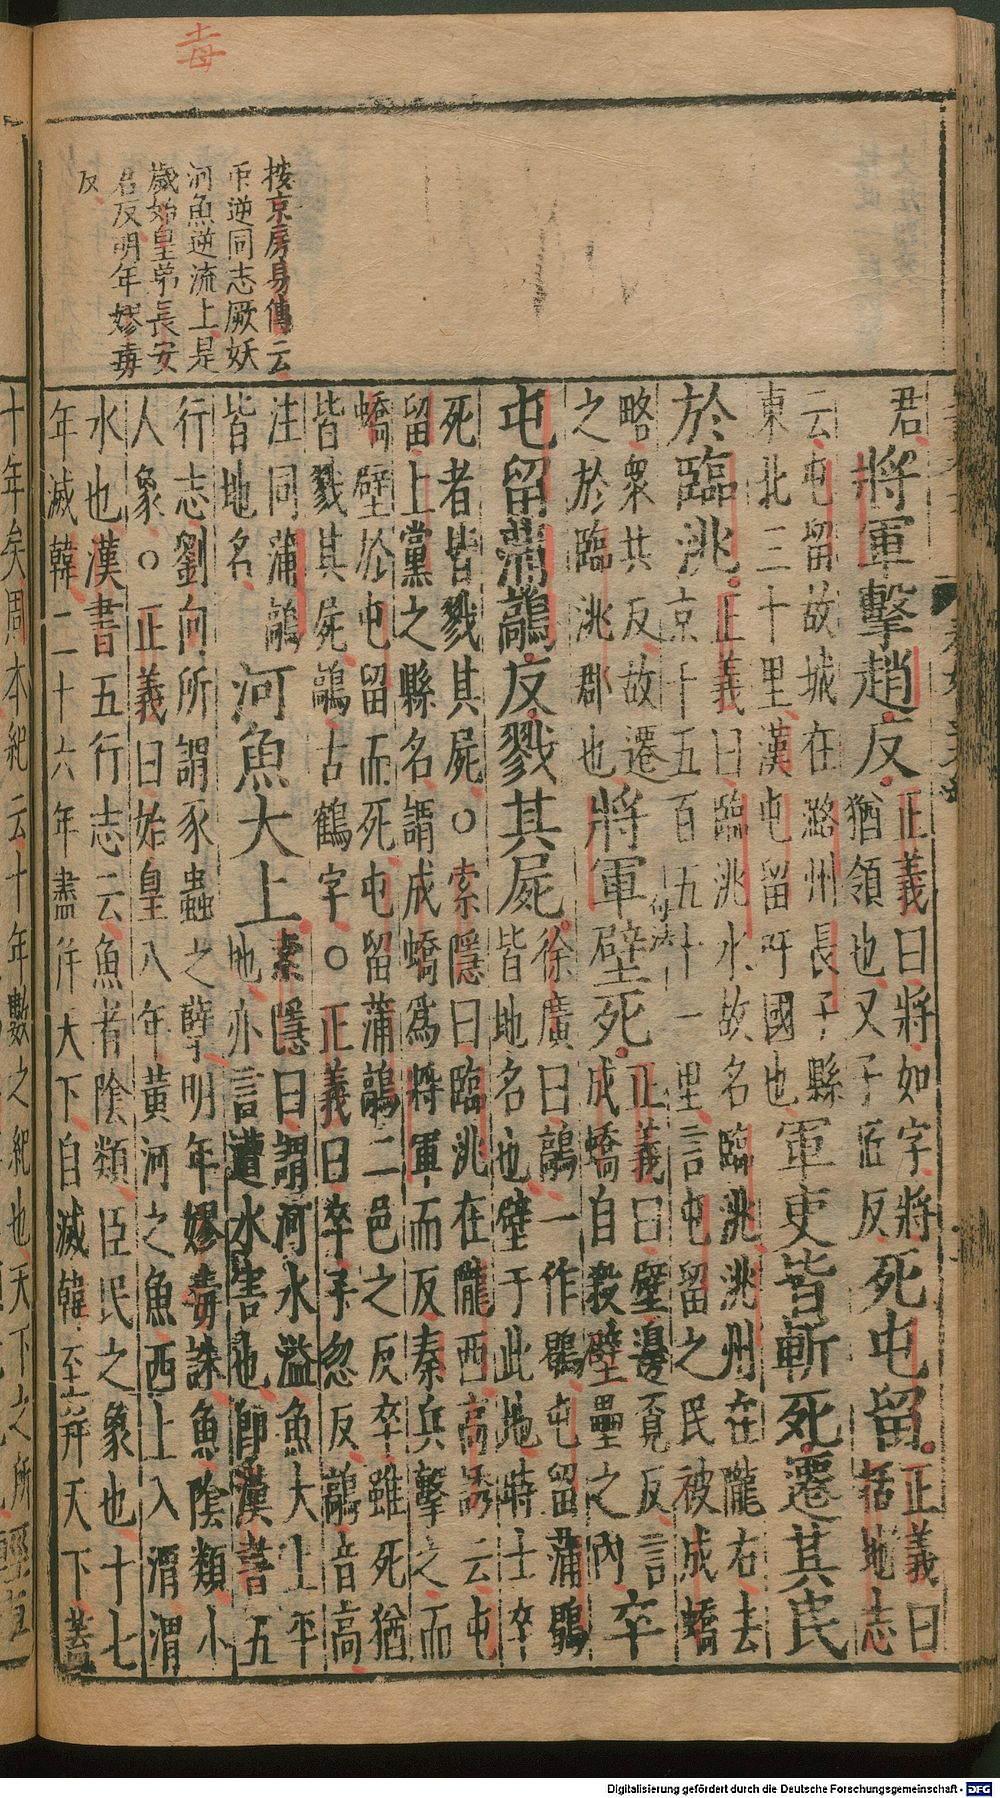 毒
按京房易傳云
帀逆同志厥妖
河魚逆流上是
歲始皇弟長安
君反明年嫪毒
反
君將軍擊趙反正義曰將如字將
猶領也又子匠反死屯留正義曰
括地志
云屯留故城在潞州長子縣
東北三十里漢屯留吁國也軍吏皆斬死遷其民
於臨洮正義曰臨洮水故名臨洮洮州在隴右去
京千五百五十一里言屯留之民被成蟜
略衆共反故遷
之於臨洮郡也將軍壁死正義曰壁邊覓反言
成蟜自殺壁壘之內卒
屯留蒲鶮反戮其屍徐廣曰鶮一作鶡屯留蒲鶡
皆地名也壁于此地時士卒
死者皆戮其屍○索隱曰臨洮在隴西高誘云屯
留上黨之縣名謂成蟜爲將軍而反秦兵擊之而
蟜壁於屯留而死屯留蒲鶮二邑之反卒雖死猶
皆戮其屍鶮古鶴字○正義曰卒子忽反鶮音高
注同蒲鶮
皆地名河魚大上索隱曰謂河水溢魚大上平
地亦言遭水害也即漢書五
行志劉向所謂豕蟲之孽明年嫪毒誅魚陰類小
人象○正義曰始皇八年黃河之魚西上入渭渭
水也漢書五行志云魚者陰類臣民之象也十七
年滅韓二十六年盡并天下自滅韓至并天下蓋
十年矣周本紀云十年數之紀也天下之所
Digitalisierung gefördert durch die Deutsche Forschungsgemeinschaft - DFG